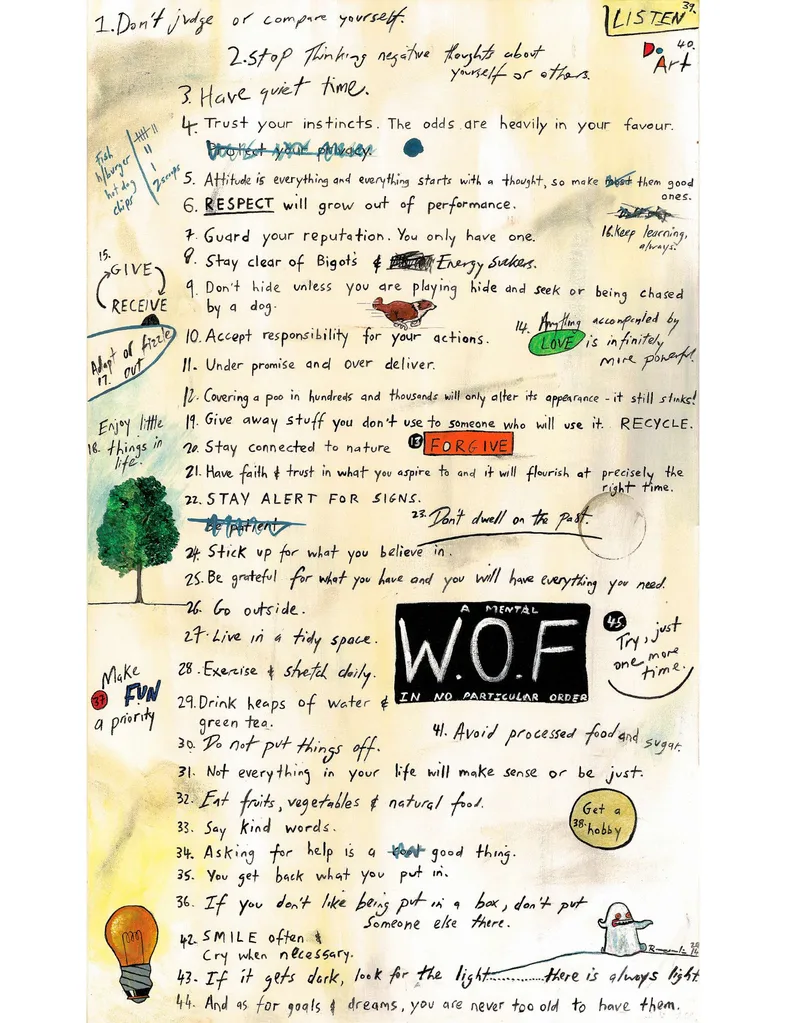 1. Don't judge or compare yourself.
39.
LISTEN
2. Stop Thinking negative thoughts about
yourself or others.
40.
Do
Art
3. Have quiet time.
4. Trust your instincts. The odds are heavily in your favour.
Protect your privacy
fish
h/burger
hot dog
chips
2 scoops
5. Attitude is everything and everything starts with a thought, so make them good
ones.
6. RESPECT will grow out of performance.
7. Guard your reputation. You only have one.
16. Keep learning,
always.
8. Stay clear of Bigots & Energy Suckers.
15.
GIVE
RECEIVE
9. Don't hide unless you are playing hide and seek or being chased
by a dog.
14. Anything accompanied by
LOVE is infinitely
more powerful.
10. Accept responsibility for your actions.
Adapt or fizzle
17. out
11. Under promise and over deliver.
12. Covering a poo in hundreds and thousands will only alter its appearance - it still stinks!
19. Give away stuff you don't use to someone who will use it. RECYCLE.
Enjoy little
18. things in
life.
20. Stay connected to nature
13 FORGIVE
21. Have faith & trust in what you aspire to and it will flourish at precisely the
right time.
22. STAY ALERT FOR SIGNS.
23. Don't dwell on the past.
Be patient
24. Stick up for what you believe in.
25. Be grateful for what you have and you will have everything you need.
26. Go outside.
A MENTAL
W.O.F
IN NO PARTICULAR ORDER
45.
Try, just
one more
time.
27. Live in a tidy space.
28. Exercise & stretch daily.
Make
37 FUN
a priority
29. Drink heaps of water &
green tea.
41. Avoid processed food and sugar.
30. Do not put things off.
31. Not everything in your life will make sense or be just.
32. Eat fruits, vegetables & natural food.
Get a
38. hobby
33. Say kind words.
34. Asking for help is a good thing.
35. You get back what you put in.
36. If you don't like being put in a box, don't put
Someone else there.
42. SMILE often &
Cry when necessary.
43. If it gets dark, look for the light..........there is always light
44. And as for goals & dreams, you are never too old to have them.